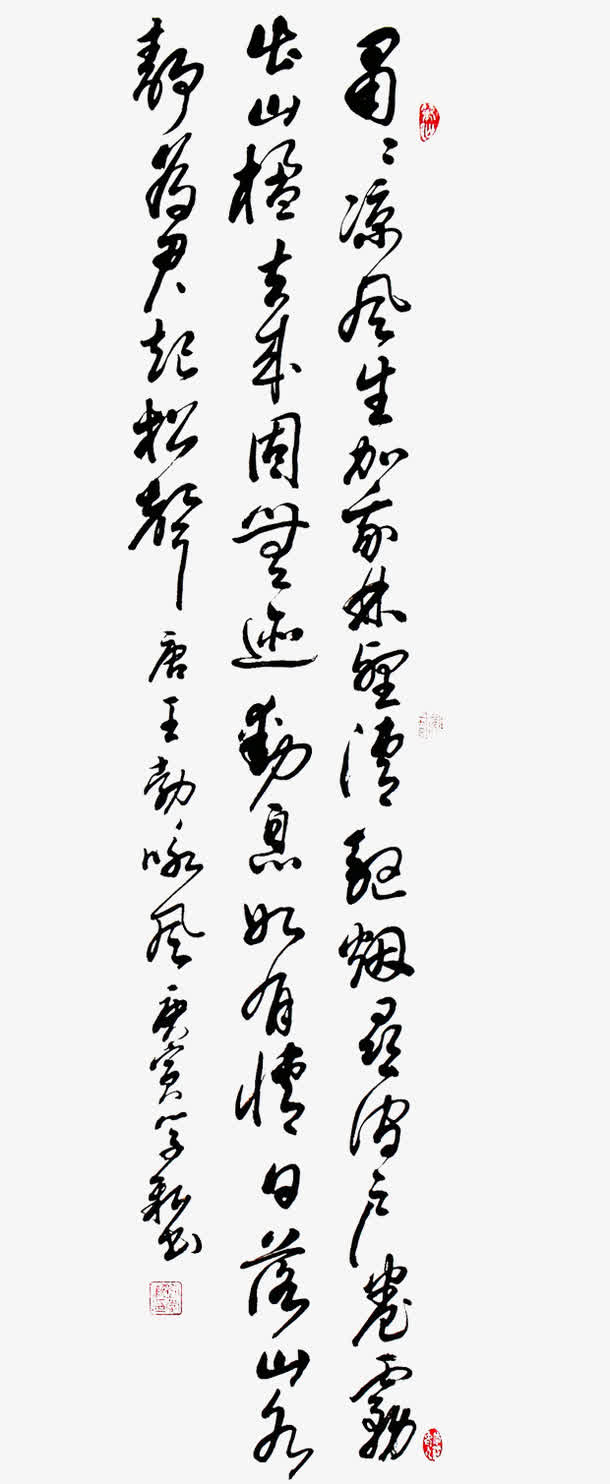 肅〻凉風生加我林壑清驅烟尋澗户卷霧
出山楹去来固無迹動息如有情日落山水
靜為君起松聲 唐王勃咏風 庚寅学書